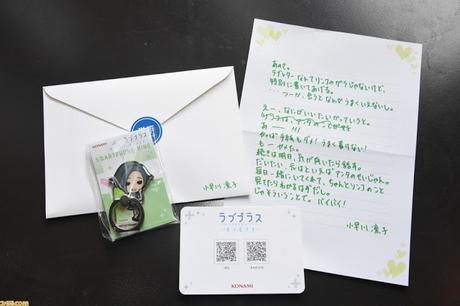 あのさ。
ラブレターなんてリンコのガラじゃないけど、
特別に書いてあげる。
…つーか、会うとなんかうまくいえないし。
えー、なにがいいたいかっていうと。
あー———!!!
やっぱ手紙もダメ! うまく書けない!
もーやめた。
続きは明日、気が向いたら話す。
だいたい、元はといえばアンタのせいじゃん。
毎日一緒にいてくれて、ちゃんとリンコのこと
見てたらわかるはずだし。
じゃそういうことで。バイバイ!
小早川 凛子
小早川 凛子
KONAMI
ラブプラス
SMARTPHONE RING
ラブプラス
KONAMI
ファミ通.com